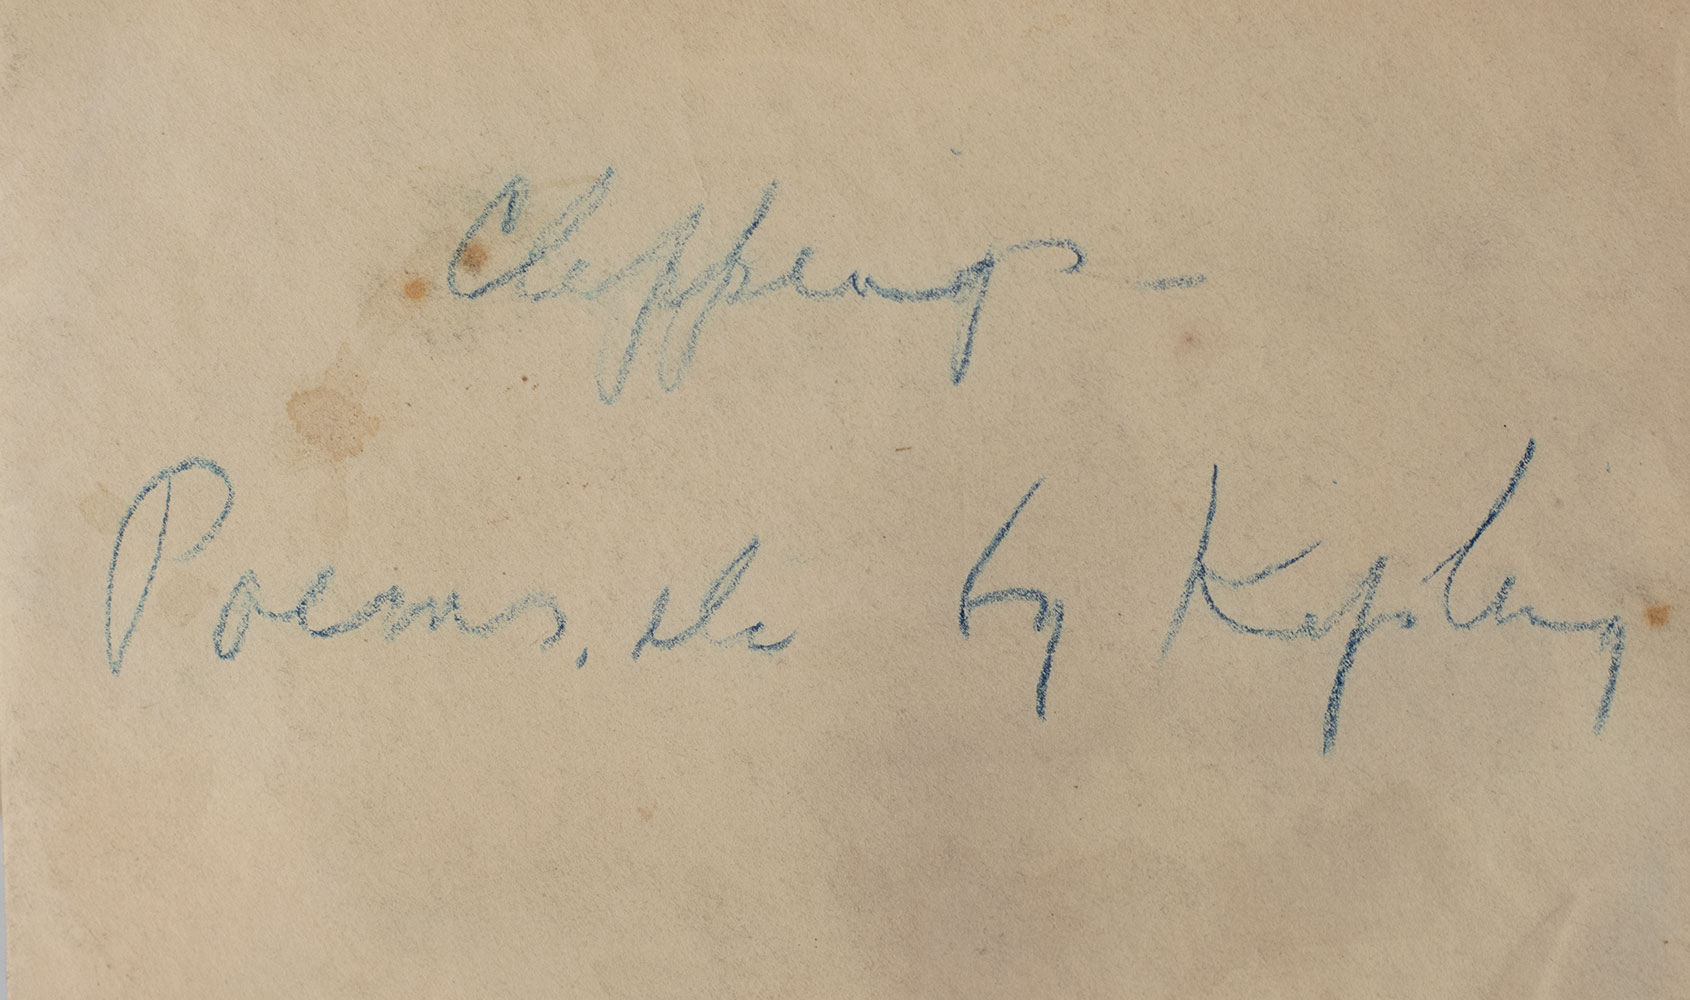 Clippings —
Poems, etc by Kipling